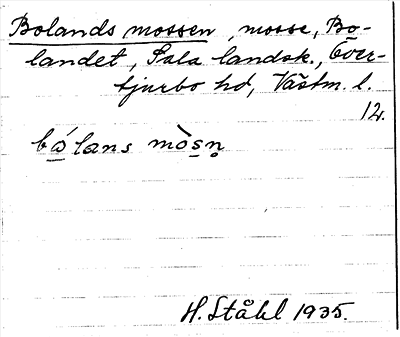 Bolands mossen, mosse, Bo-
landet, Sala landsk., Över-
tjurbo hd, Västm. l.
12.
bá̱lans mòs̱n̥
H. Ståhl 1935.